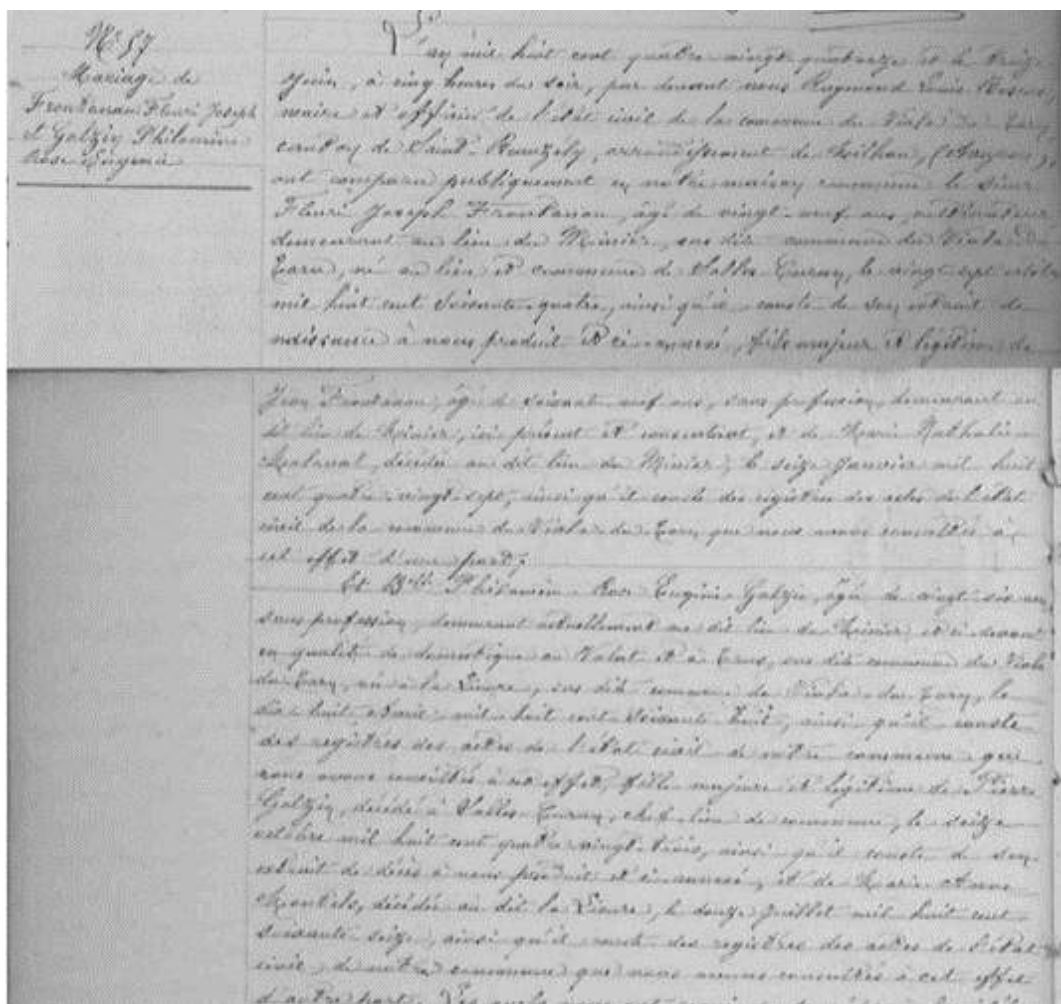 N° 57
Mariage de
Frontanau Fleuri Joseph
et Galzin Philomène
Rose Eugénie
L'an mil huit cent quatre vingt quatorze et le treize
Juin, à cinq heures du soir, par devant nous Raymond Louis
maire et officier de l'état civil de la commune du Viala du Tarn
canton de Saint-Beauzély, arrondissement de Milhau, (Aveyron),
ont comparu publiquement en notre maison commune le sieur
Fleuri Joseph Frontanau, âgé de vingt-neuf ans,
demeurant au lieu du Minier, sus dite commune du Viala du
Tarn, né au lieu et commune de Salles Curan, le vingt sept octobre
mil huit cent soixante-quatre, ainsi qu'il conste de son extrait de
naissance à nous produit et ci-annexé, fils majeur et légitime de
Jean Frontanau, âgé de soixante neuf ans, sans profession, demeurant au
dit lieu de Minier, ici présent et consentant, et de Marie Nathalie
décédée au dit lieu du Minier, le seize Janvier mil huit
cent quatre vingt-sept, ainsi qu'il conste des registres des actes de l'état
civil de la commune du Viala du Tarn que nous avons consultés à
cet effet d'une part;
Et Dlle Philomène Rose Eugénie Galzin, âgée de vingt six ans
sans profession, demeurant actuellement au dit lieu de Minier et ci devant
en qualité de domestique au Valat et à sus dite commune du Viala
du Tarn, née à la Lieure, sus dite commune de Viala du Tarn, le
dix huit Avril mil huit cent soixante huit, ainsi qu'il conste
des registres des actes de l'état civil de notre commune que
nous avons consultés à cet effet, fille majeure et légitime de Pierre
Galzin, décédé à Salles Curan, chef lieu de commune, le seize
octobre mil huit cent quatre vingt-trois, ainsi qu'il conste de son
extrait de décès à nous produit et ci-annexé, et de Marie Anne
Montels, décédée au dit la Lieure, le douze Juillet mil huit cent
soixante seize, ainsi qu'il conste des registres des actes de l'état
civil de notre commune que nous avons consultés à cet effet
d'autre part. Les quels nous ont